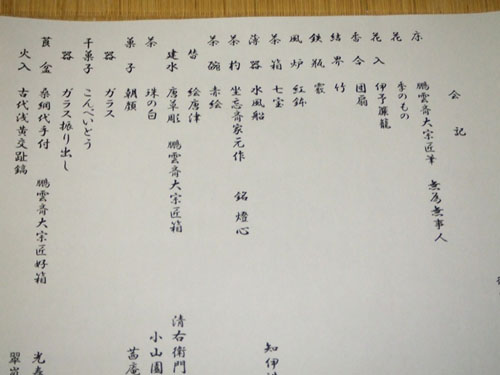 会記
床 鵬雲斎大宗匠筆 無為無事人
花 季のもの
花入 伊予簾籠
香合 団扇
結界 竹
鉄瓶 霰
風炉 紅鉢
茶箱 七宝
薄器 水風船
茶杓 坐忘斎家元作 銘 燈心
茶碗 赤絵
皆 絵唐津
建水 唐草彫 鵬雲斎大宗匠箱 清右衛門
茶 珠の白 小山園
菓子 朝顔 菖庵
器 ガラス
干菓子 こんぺいとう
器 ガラス振り出し
莨盆 桑網代手付 鵬雲斎大宗匠好箱
火入 古代浅黄交趾鎬